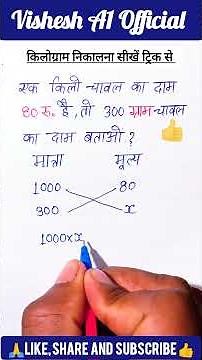 Vishesh A1 Official
किलोग्राम निकालना सीखें ट्रिक से
एक किलो चावल का दाम
80 रु. है, तो 300 ग्राम चावल
का दाम बताओ ?
मात्रा मूल्य
1000 80
300 x
1000×x
LIKE, SHARE AND SUBSCRIBE